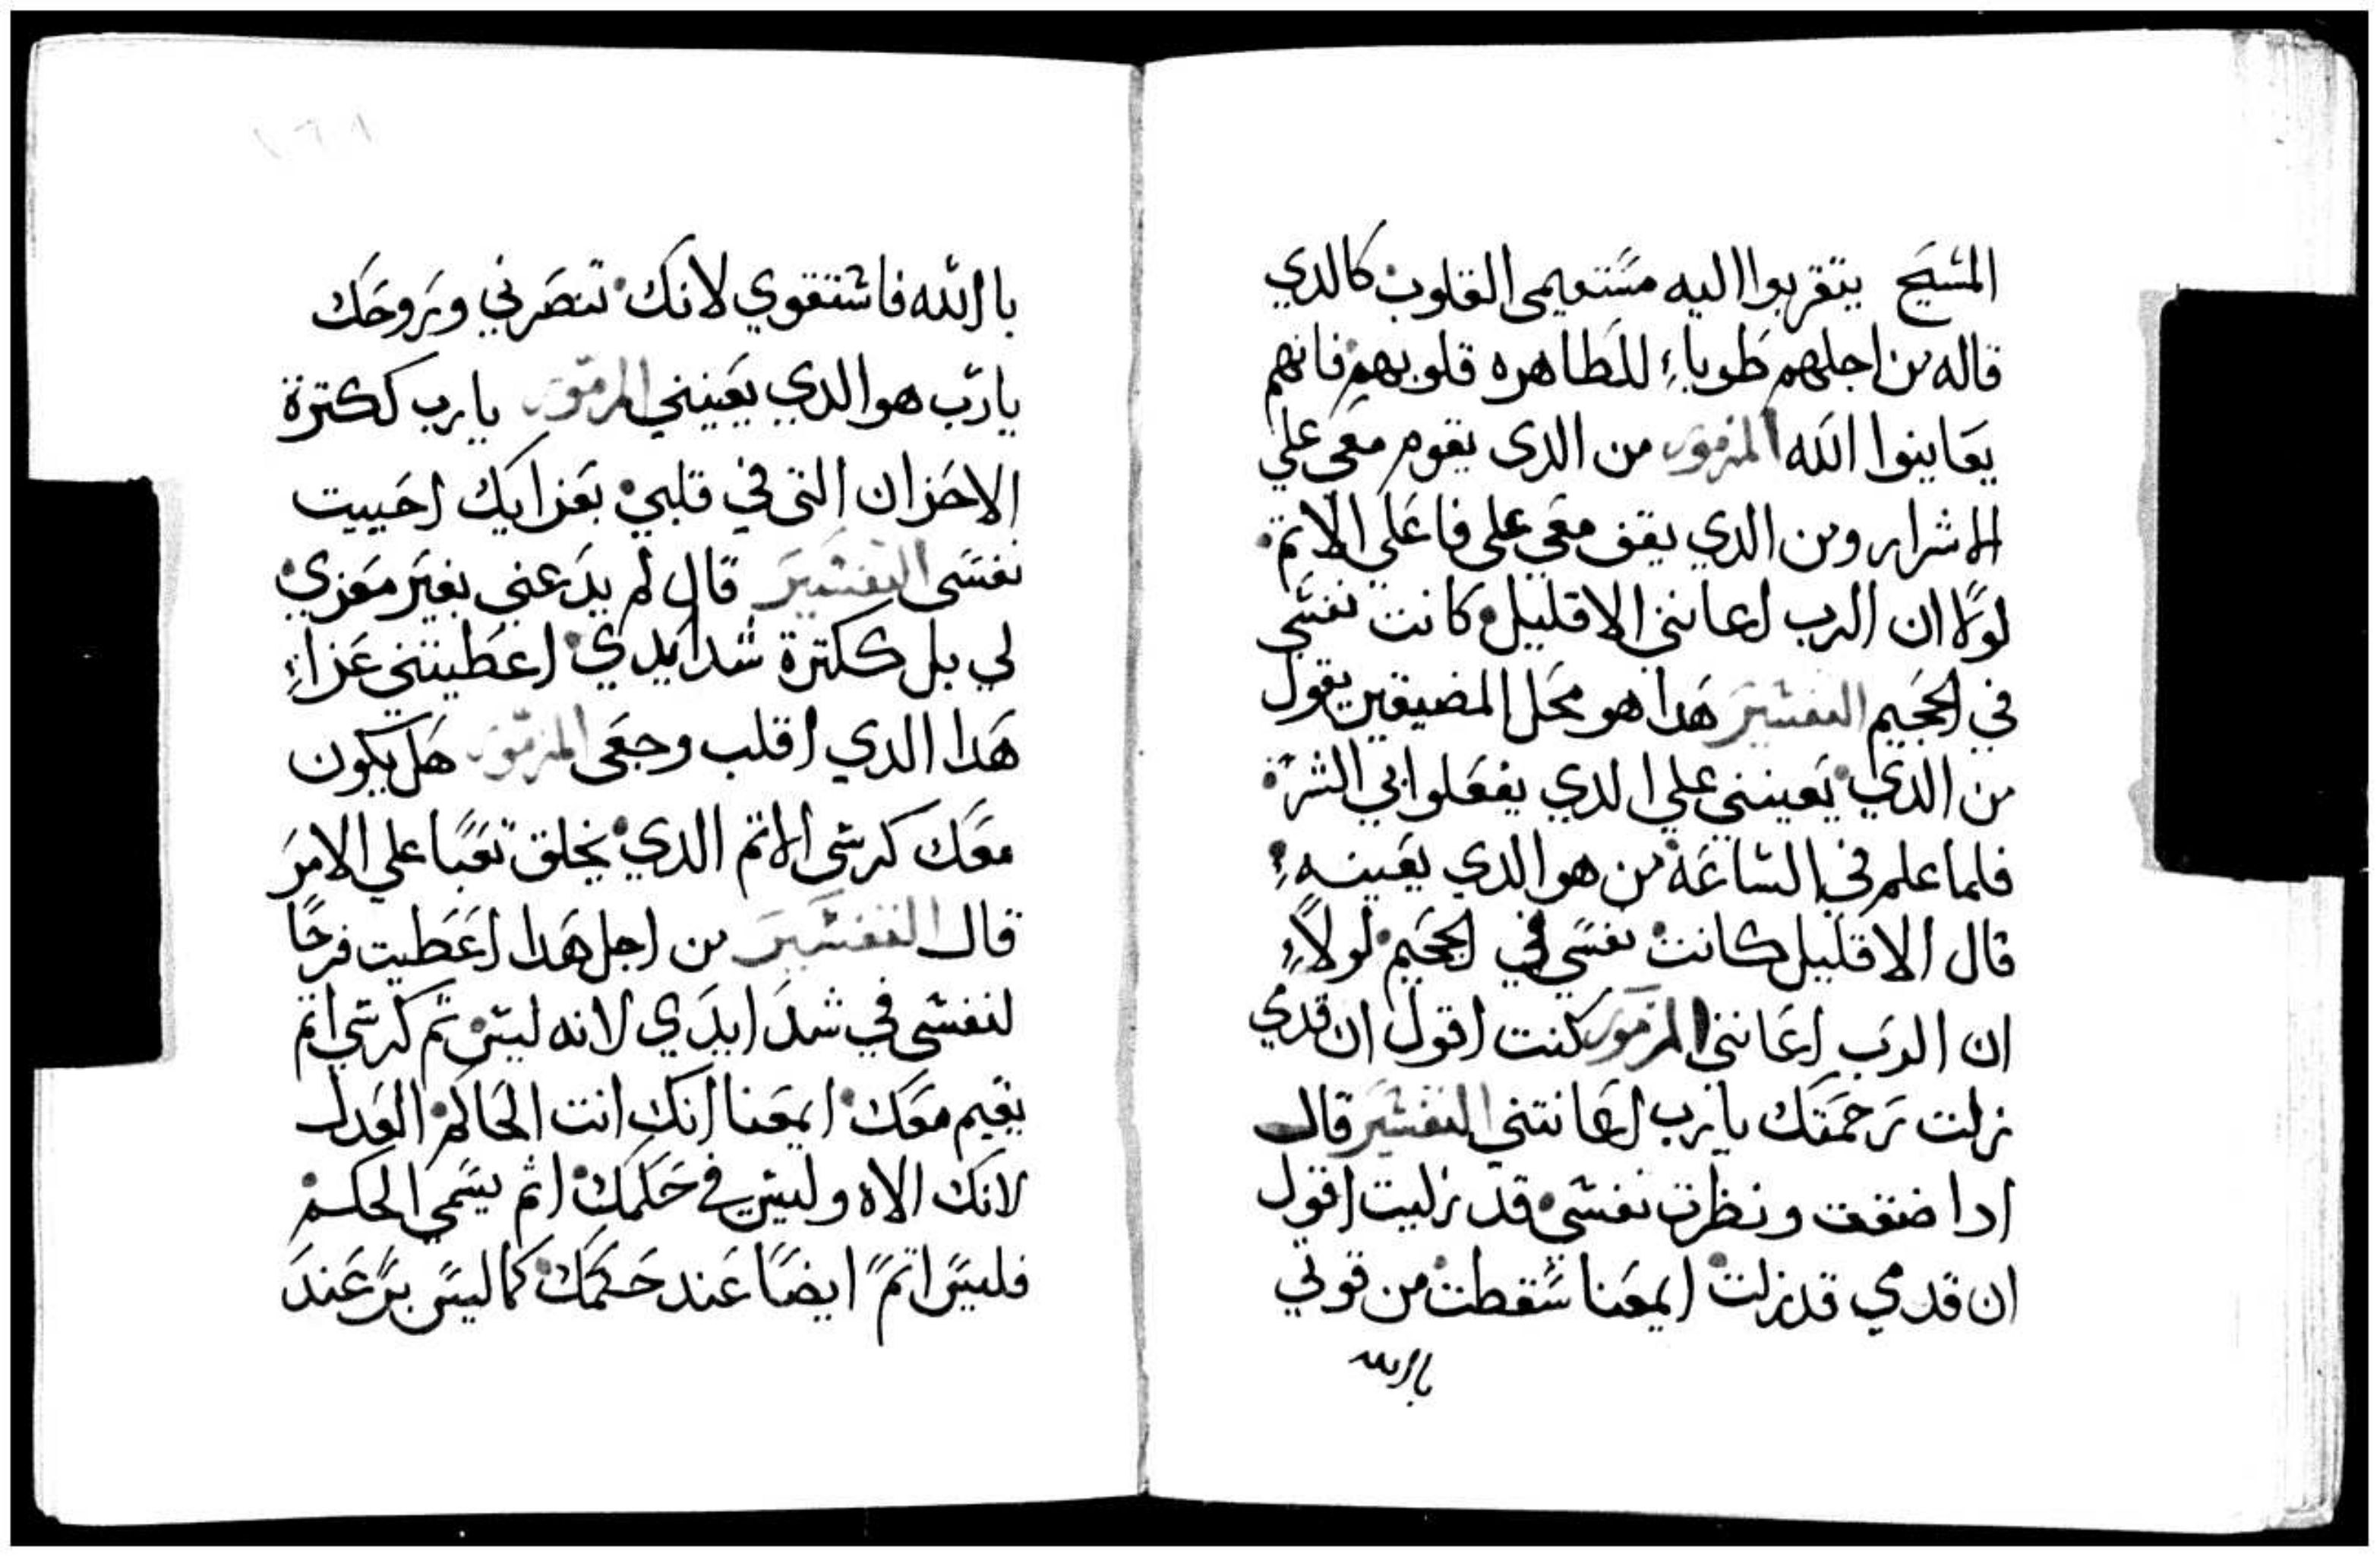 المسيح يتقربوا اليه مستقيمى القلوب كالدي
قاله من اجلهم طوباء للطاهره قلوبهم فانهم
يعاينوا الله المزمور من الدى يقوم معى علي
الاشرار ومن الدي يقف معي على فاعلي الاتم
لولا ان الرب اعاننى الاقليل كانت نفسي
في الجحيم التفسير هدا هو محل المضيقين يقول
من الدي يعيننى علي الدي يفعلوا بي الشر
فلما علم في الساعة من هو الدي يعينه
قال الاقليل كانت نفسي في الجحيم لولاء
ان الرب اعاننى المزمور كنت اقول ان قدمي
زلت رحمتك يارب اعانتني التفسير قال
ادا ضقت ونظرت نفسي قد زليت اقول
ان قدمي قد زلت ايمعنا سقطت من قوتي
بالله
بالله فاستقوي لانك تنصرني وبروحك
يارب هو الدي يعينني المزمور يارب ككترة
الاحزان التى في قلبي بعزايك احييت
نفسى التفسير قال لم يدعني بغير معزي
لي بل ككترة شدايدي اعطيتني عزاء
هدا الدي اقلب وجعى المزمور هل يكون
معك كرسى الاتم الدي يخلق تعبا علي الامر
قال التفسير من اجل هدا اعطيت فرحا
لنفسى في شدايدي لانه ليس تم كرسي اتم
يقيم معك ايمعنا انك انت الحاكم العدل
لانك الاه وليس في حكمك اتم يسمي الحكم
فليس اتم ايضا عند حكمك كما ليس بر عند